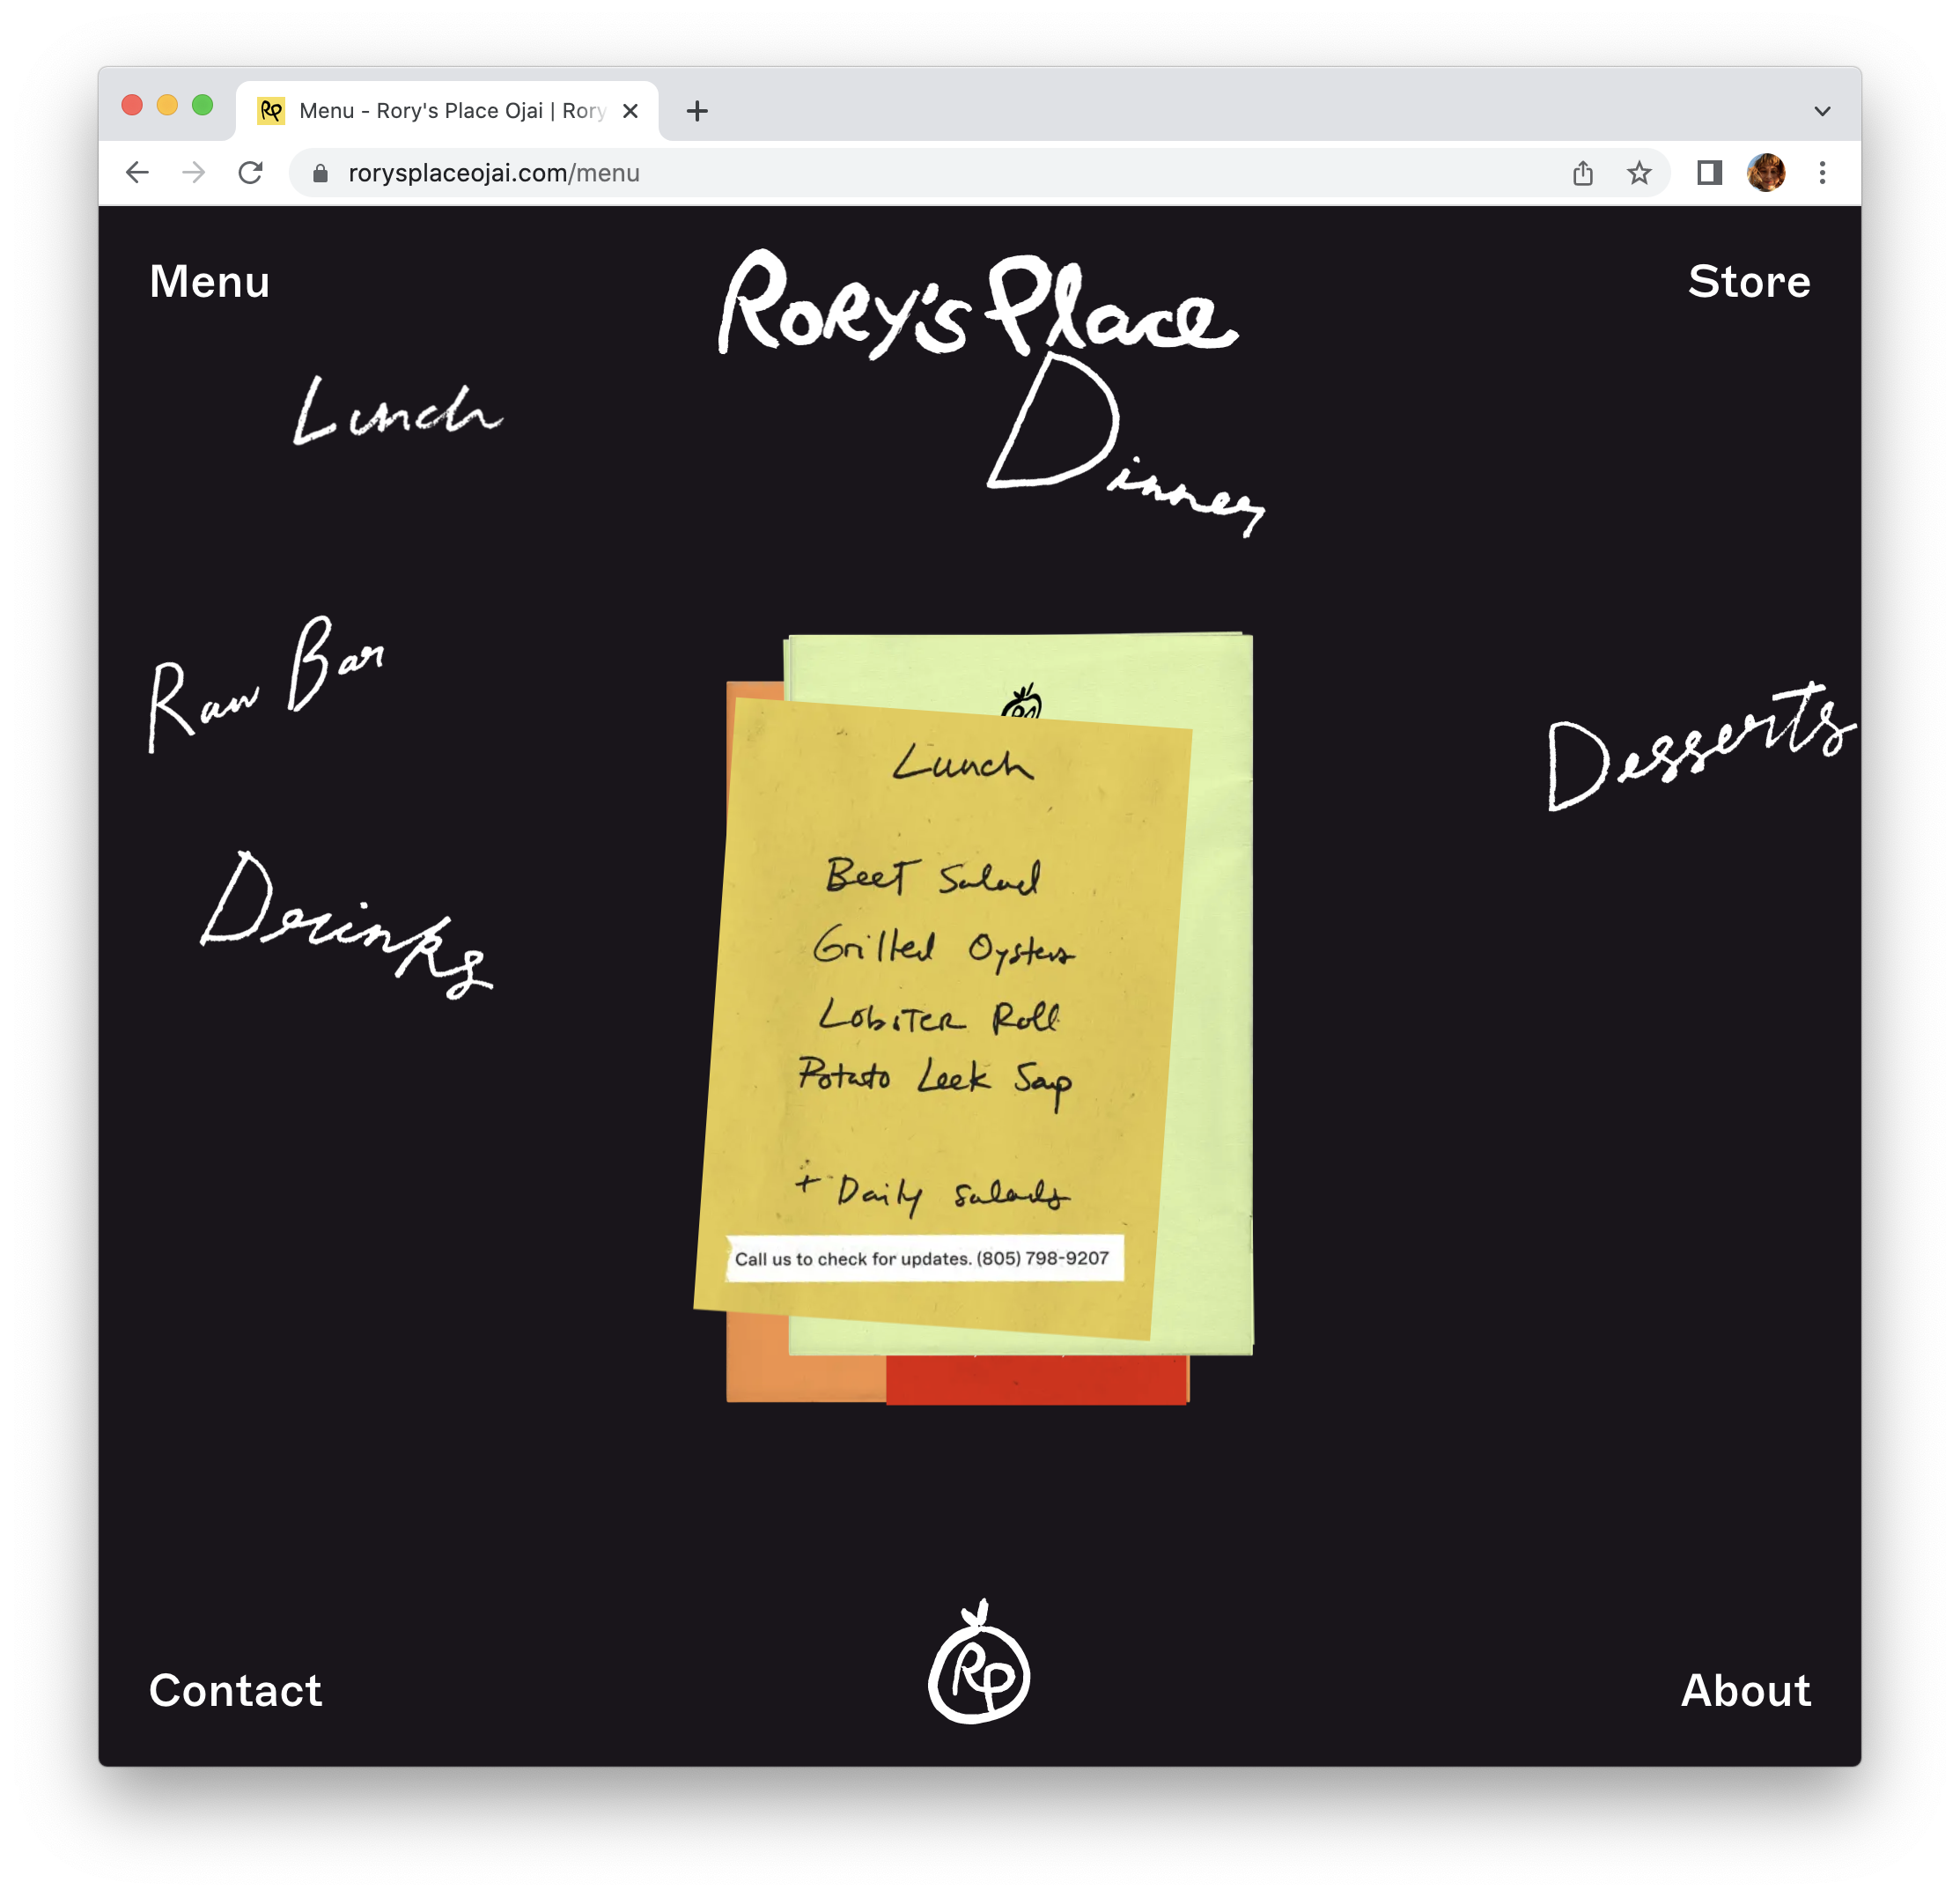 Menu - Rory's Place Ojai | Rory
rorysplaceojai.com/menu
Menu
Rory's Place
Store
Lunch
Dinner
Raw Bar
Desserts
Drinks
RP
Lunch
Beet Salad
Grilled Oysters
Lobster Roll
Potato Leek Soup
+ Daily Salads
Call us to check for updates. (805) 798-9207
Contact
RP
About